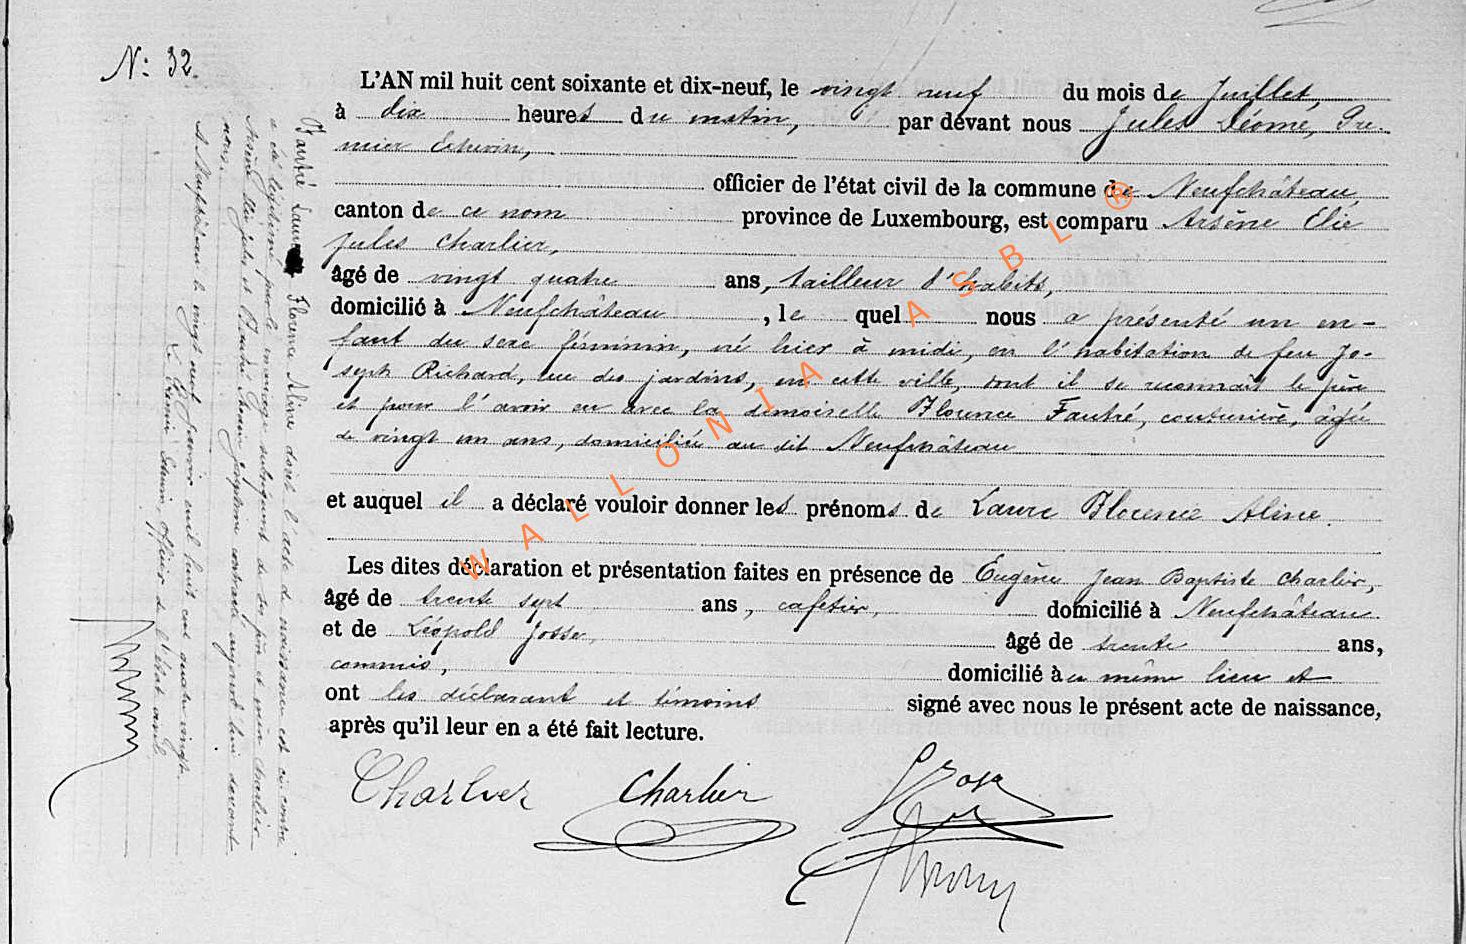 N: 32.
L'AN mil huit cent soixante et dix-neuf, le vingt neuf du mois de Juillet,
à dix heures du matin, par dévant nous Jules Léonne, Pre-
mier Echevin,
officier de l'état civil de la commune de Neufchâteau,
canton de ce nom province de Luxembourg, est comparu Arsène Elie
Jules Charlier,
âgé de vingt quatre ans, tailleur d'habits,
domicilié à Neufchâteau, le quel nous a présenté un en-
fant du sexe féminin, né hier à midi, en l'habitation de feu Jo-
seph Richard, rue des jardins, en cette ville, dont il se reconnaît le père
et pour l'avoir eu avec la demoiselle Florence Fautré, couturière, âgée
de vingt un ans, domiciliée au dit Neufchâteau
et auquel il a déclaré vouloir donner les prénoms de Laure Florence Aline.
Les dites déclaration et présentation faites en présence de Eugène Jean Baptiste Charlier,
âgé de trente sept ans, cafetier, domicilié à Neufchâteau
et de Léopold Josse, âgé de trente ans,
commis, domicilié au même lieu et
ont les déclarant et témoins signé avec nous le présent acte de naissance,
après qu'il leur en a été fait lecture.
Charlier Charlier
Fautré Laure Florence Aline dont l'acte de naissance est ci contre
a été légitimée par le mariage subséquent de ses père et mère Charlier
Arsène Elie Jules et Fautré Florence contracté aujourd'hui devant
nous.
A Neufchâteau le vingt huit cent quatre vingt
Le Premier Echevin, officier de l'état civil
WALLONIA ASBL ®